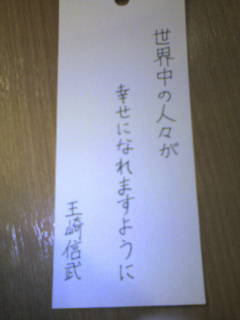 世界中の人々が
幸せになれますように
王崎信武